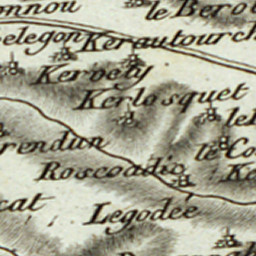 onnou
le Bero
elegon
Kerautourch
Kervety
Kerlosquet
rendun
le Co
Roscoadic
cat
Legodée